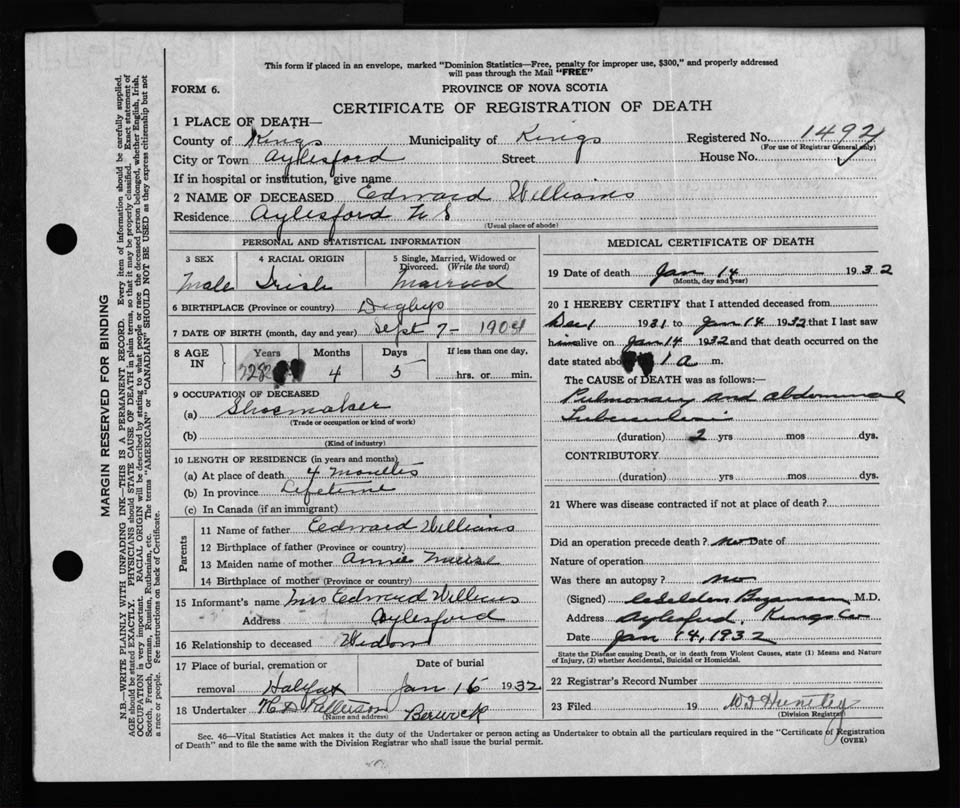 This form if placed in an envelope, marked "Dominion Statistics—Free, penalty for improper use, $300," and properly addressed
will pass through the Mail "FREE"
FORM 6.
PROVINCE OF NOVA SCOTIA
CERTIFICATE OF REGISTRATION OF DEATH
1 PLACE OF DEATH—
County of Kings Municipality of Kings Registered No. 1492
(For use of Registrar General only)
City or Town Aylesford Street House No.
If in hospital or institution, give name
2 NAME OF DECEASED Edward Williams
Residence Aylesford N S
(Usual place of abode)
PERSONAL AND STATISTICAL INFORMATION
3 SEX 4 RACIAL ORIGIN 5 Single, Married, Widowed or Divorced. (Write the word)
Male Irish Married
6 BIRTHPLACE (Province or country) Digby
7 DATE OF BIRTH (month, day and year) Sept 7- 1904
8 AGE IN Years Months Days If less than one day,
4 5 hrs. or min.
9 OCCUPATION OF DECEASED
(a) Shoemaker
(Trade or occupation or kind of work)
(b)
(Kind of industry)
10 LENGTH OF RESIDENCE (in years and months)
(a) At place of death 4 months
(b) In province Lifetime
(c) In Canada (if an immigrant)
Parents
11 Name of father Edward Williams
12 Birthplace of father (Province or country)
13 Maiden name of mother Annie
14 Birthplace of mother (Province or country)
15 Informant's name Mrs Edward Williams
Address Aylesford
16 Relationship to deceased Widow
17 Place of burial, cremation or removal Date of burial
Halifax Jan 16 1932
18 Undertaker
(Name and address) Berwick
MEDICAL CERTIFICATE OF DEATH
19 Date of death Jan 14 1932
(Month, day and year)
20 I HEREBY CERTIFY that I attended deceased from
Dec 1 1931 to Jan 14 1932 that I last saw
him alive on Jan 14 1932 and that death occurred on the
date stated above 1 a m.
The CAUSE of DEATH was as follows:—
Pulmonary and abdominal
Tuberculosis
(duration) 2 yrs mos dys.
CONTRIBUTORY
(duration) yrs mos dys.
21 Where was disease contracted if not at place of death?
Did an operation precede death? no Date of
Nature of operation
Was there an autopsy? no
(Signed) M.D.
Address Aylesford, Kings Co
Date Jan 14, 1932
State the Disease causing Death, or in death from Violent Causes, state (1) Means and Nature
of Injury, (2) whether Accidental, Suicidal or Homicidal.
22 Registrar's Record Number
23 Filed 19 Huntley
(Division Registrar)
Sec. 46—Vital Statistics Act makes it the duty of the Undertaker or person acting as Undertaker to obtain all the particulars required in the "Certificate of Registration
of Death" and to file the same with the Division Registrar who shall issue the burial permit.
(OVER)
MARGIN RESERVED FOR BINDING
N.B.—WRITE PLAINLY WITH UNFADING INK—THIS IS A PERMANENT RECORD. Every item of information should be carefully supplied.
AGE should be stated EXACTLY. PHYSICIANS should STATE CAUSE OF DEATH in plain terms, so that it may be properly classified. Exact statement of
OCCUPATION is very important. RACIAL ORIGIN will be described by stating to what people or race the deceased person belonged, whether English, Irish,
Scotch, French, German, Russian, Ruthenian, etc. The terms "AMERICAN" or "CANADIAN" SHOULD NOT BE USED as they express citizenship but not
a race or people. See instructions on back of Certificate.